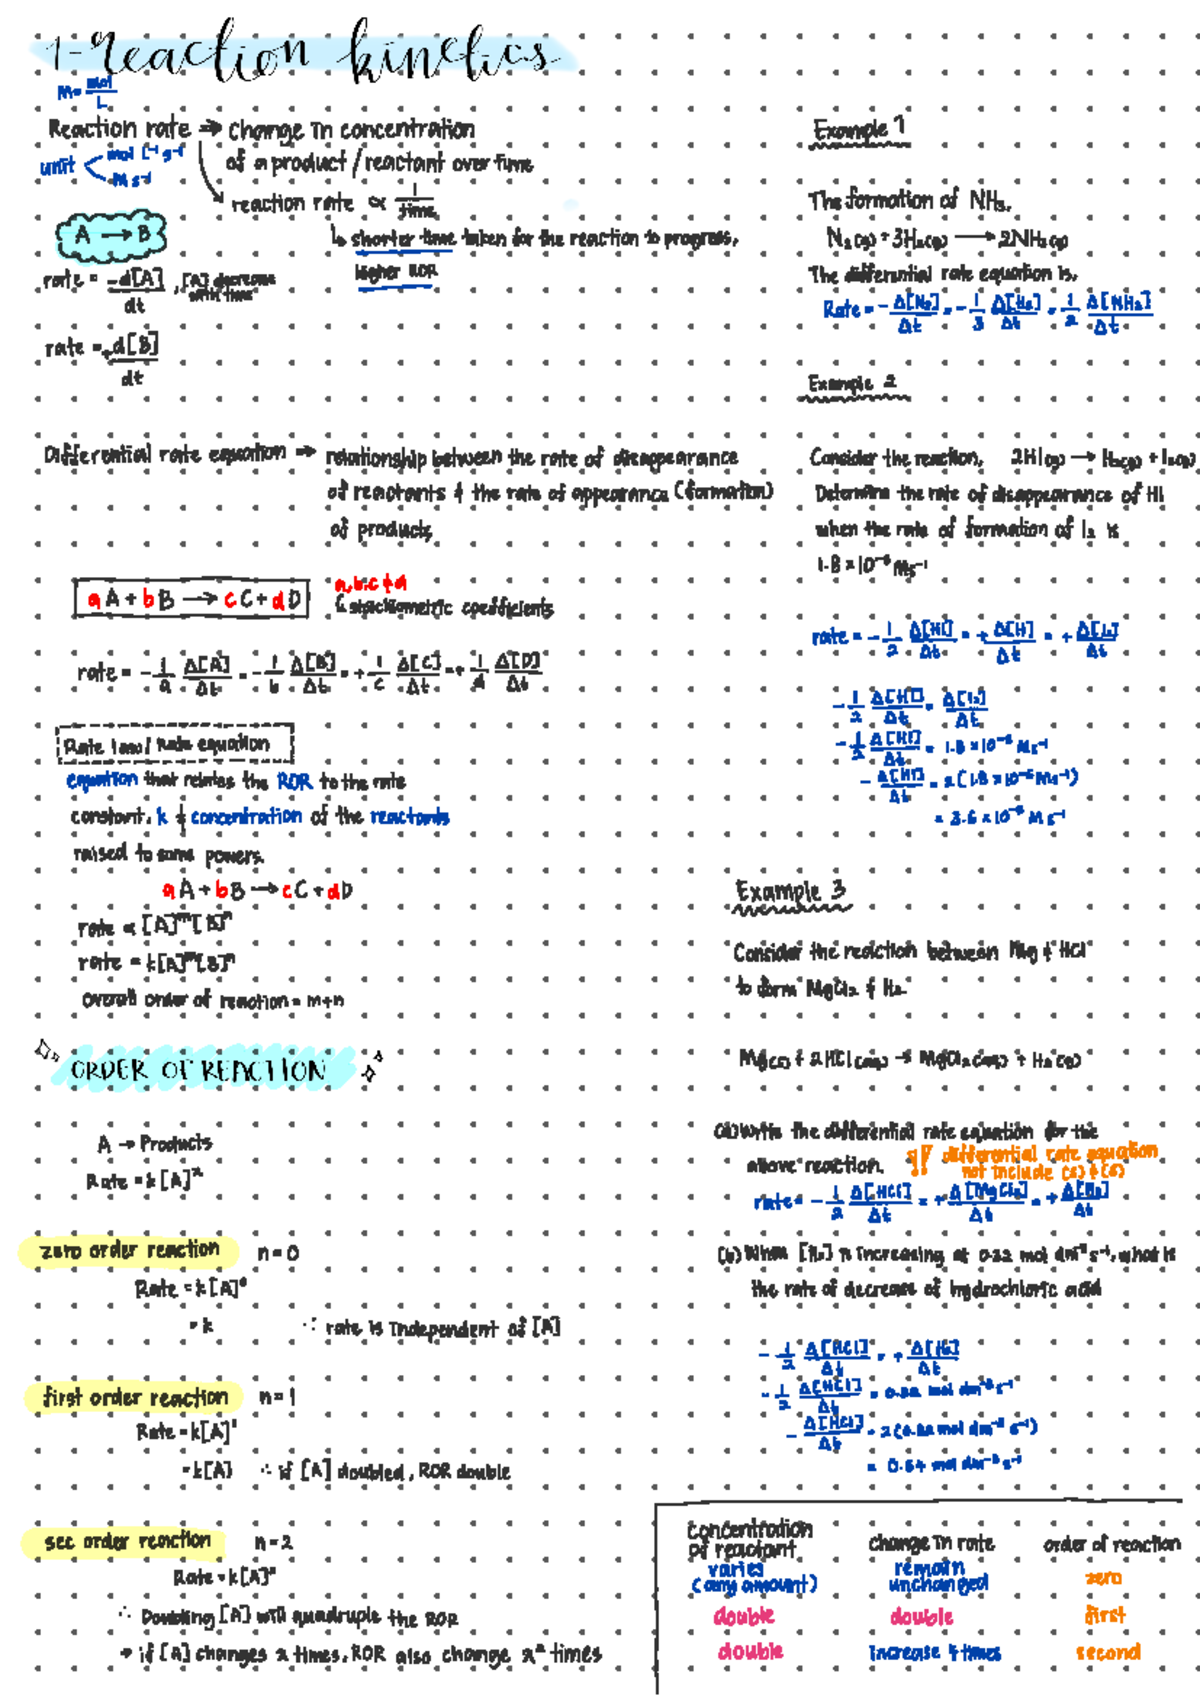 1-reaction kinetics
M = mol/L
Reaction rate → change in concentration
of a product / reactant over time
unit < mol L⁻¹ s⁻¹
M s⁻¹
reaction rate ∝ 1/time
↳ shorter time taken for the reaction to progress,
higher ROR
A → B
rate = -d[A]/dt , [A] decrease with time
rate = +d[B]/dt
Differential rate equation → relationship between the rate of disappearance
of reactants & the rate of appearance (formation)
of products
aA + bB → cC + dD
a, b, c & d
↳ stoichiometric coefficients
rate = -1/a Δ[A]/Δt = -1/b Δ[B]/Δt = +1/c Δ[C]/Δt = +1/d Δ[D]/Δt
Rate law / Rate equation
equation that relates the ROR to the rate
constant, k & concentration of the reactants
raised to some powers.
aA + bB → cC + dD
rate ∝ [A]ᵐ[B]ⁿ
rate = k[A]ᵐ[B]ⁿ
overall order of reaction = m+n
ORDER OF REACTION
A → Products
Rate = k[A]ˣ
zero order reaction n = 0
Rate = k[A]⁰
= k ∴ rate is independent of [A]
first order reaction n = 1
Rate = k[A]¹
= k[A] ∴ if [A] doubled, ROR double
sec order reaction n = 2
Rate = k[A]²
∴ Doubling [A] will quadruple the ROR
→ if [A] changes x times, ROR also change x² times
Example 1
The formation of NH₃.
N₂(g) + 3H₂(g) → 2NH₃(g)
The differential rate equation is,
Rate = -Δ[N₂]/Δt = -1/3 Δ[H₂]/Δt = 1/2 Δ[NH₃]/Δt
Example 2
Consider the reaction, 2HI(g) → H₂(g) + I₂(g)
Determine the rate of disappearance of HI
when the rate of formation of I₂ is
1.8 × 10⁻⁶ Ms⁻¹
rate = -1/2 Δ[HI]/Δt = +Δ[H]/Δt = +Δ[I₂]/Δt
-1/2 Δ[HI]/Δt = Δ[I₂]/Δt
-1/2 Δ[HI]/Δt = 1.8 × 10⁻⁶ Ms⁻¹
-Δ[HI]/Δt = 2(1.8 × 10⁻⁶ Ms⁻¹)
= 3.6 × 10⁻⁶ M s⁻¹
Example 3
Consider the reaction between Mg & HCl
to form MgCl₂ & H₂
Mg(s) + 2HCl(aq) → MgCl₂(aq) + H₂(g)
(a) Write the differential rate equation for the
above reaction. !! differential rate equation
not include (s) & (l)
rate = -1/2 Δ[HCl]/Δt = +Δ[MgCl₂]/Δt = +Δ[H₂]/Δt
(b) When [H₂] is increasing at 0.32 mol dm⁻³ s⁻¹, what is
the rate of decrease of hydrochloric acid
-1/2 Δ[HCl]/Δt = +Δ[H₂]/Δt
-1/2 Δ[HCl]/Δt = 0.32 mol dm⁻³ s⁻¹
-Δ[HCl]/Δt = 2(0.32 mol dm⁻³ s⁻¹)
= 0.64 mol dm⁻³ s⁻¹
concentration of reactant change in rate order of reaction
varies (any amount) remain unchanged zero
double double first
double increase 4 times second